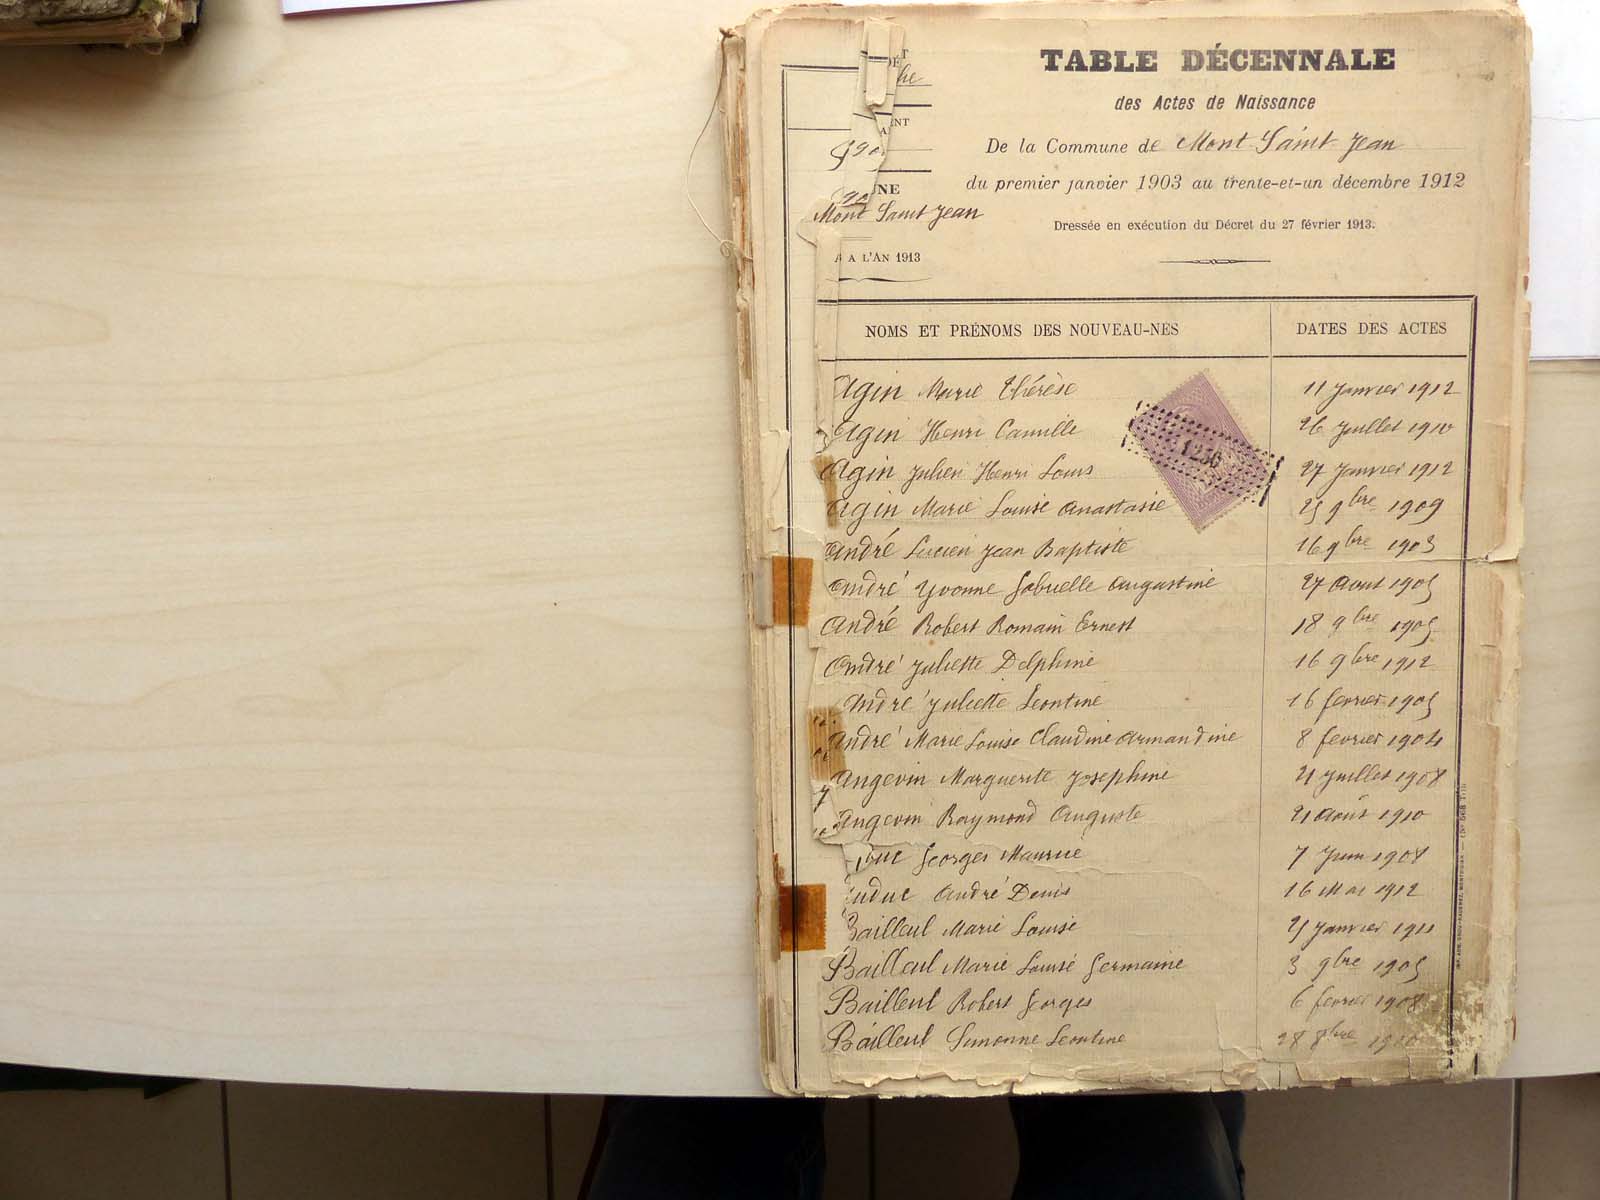 TABLE DÉCENNALE
des Actes de Naissance
De la Commune de Mont Saint Jean
du premier janvier 1903 au trente-et-un décembre 1912
Dressée en exécution du Décret du 27 février 1913.
Mont Saint Jean
A L'AN 1913
NOMS ET PRÉNOMS DES NOUVEAU-NES DATES DES ACTES
Agin Marie Thérèse 11 Janvier 1912
Agin Henri Camille 26 Juillet 1910
Agin Julien Henri Louis 27 Janvier 1912
Agin Marie Louise Anastasie 9bre 1909
1236
André Lucien Jean Baptiste 16 9bre 1903
André Yvonne Gabrielle Augustine 27 Aout 1905
André Robert Romain Ernest 18 9bre 1905
André Juliette Delphine 16 9bre 1912
André Juliette Leontine 16 fevrier 1905
André Marie Louise Claudine Armandine 8 fevrier 1904
Angevin Marguerite Josephine 21 Juillet 1908
Angevin Raymond Auguste 21 Août 1910
Georges Maurice 7 Juin 1908
André Denis 16 Mai 1912
Bailleul Marie Louise Janvier 1911
Bailleul Marie Louise Germaine 3 9bre 1905
Bailleul Robert Georges 6 fevrier 1908
Bailleul Simonne Leontine 28 8bre 1910